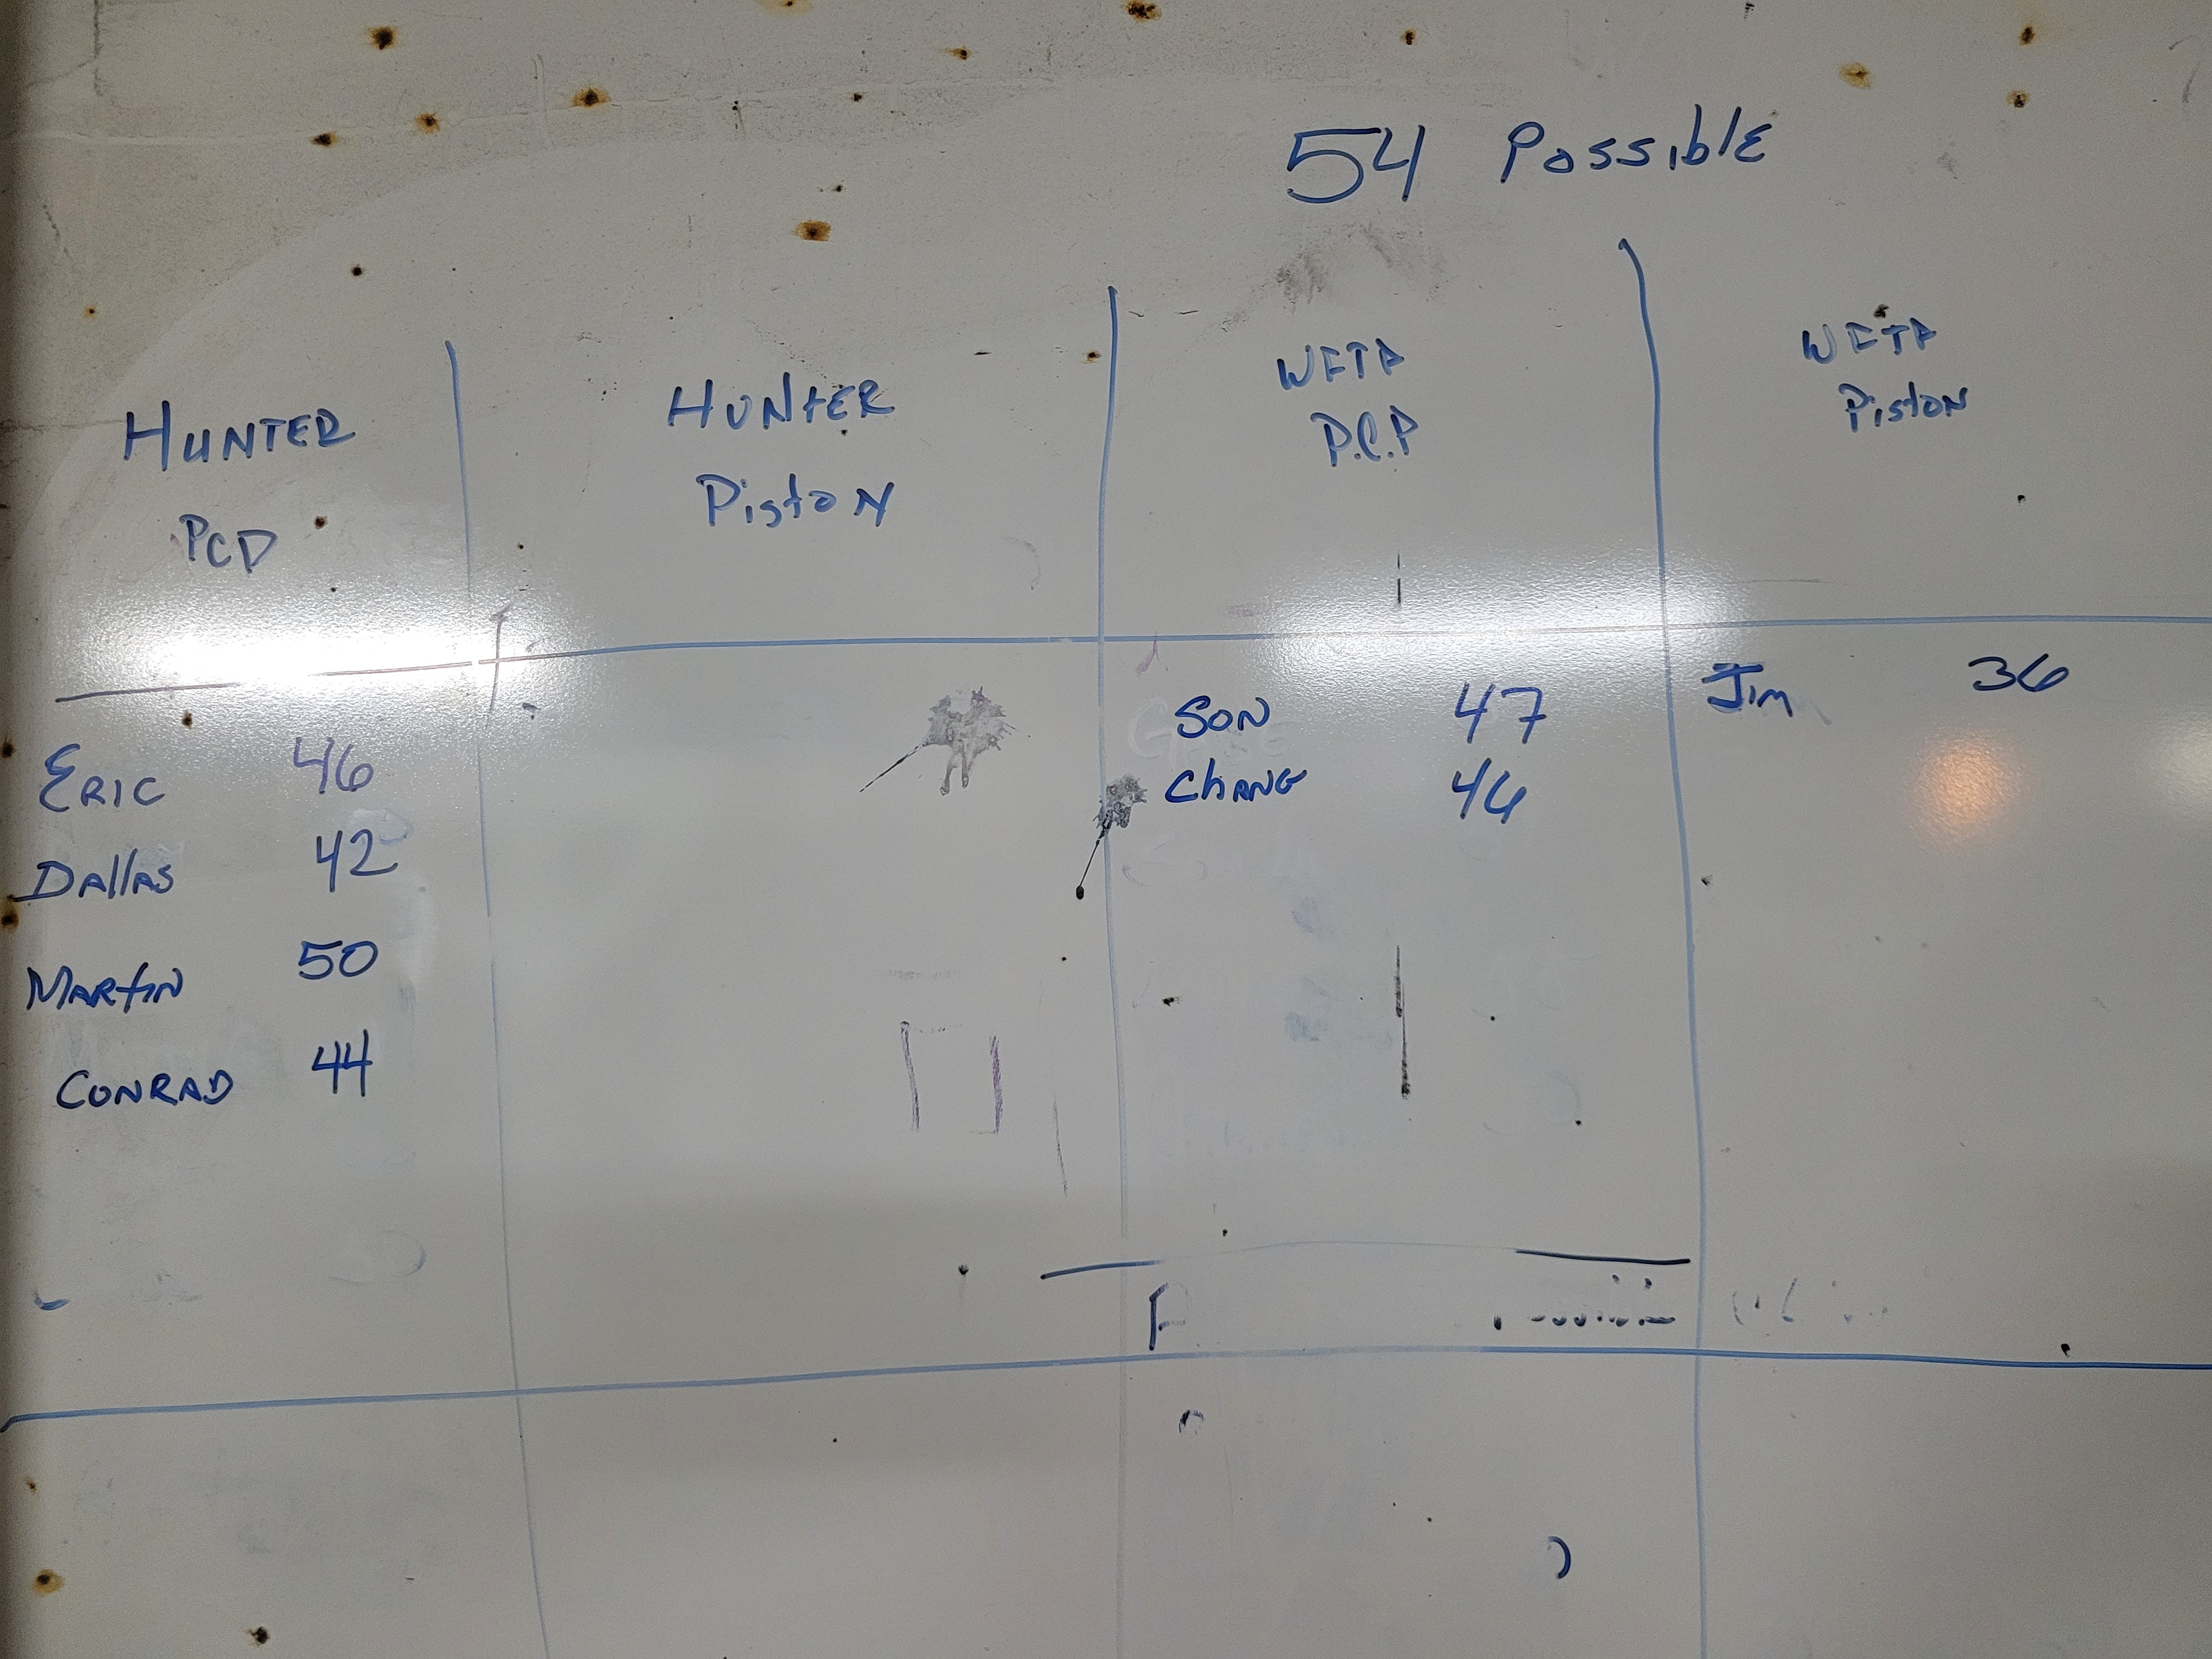 54 Possible
HUNTER
PCP
HUNTER
Piston
WFTA
P.C.P
WFTA
Piston
ERIC 46
DAllAS 42
MARtiN 50
CONRAD 44
SON 47
ChANG 46
Jim 36